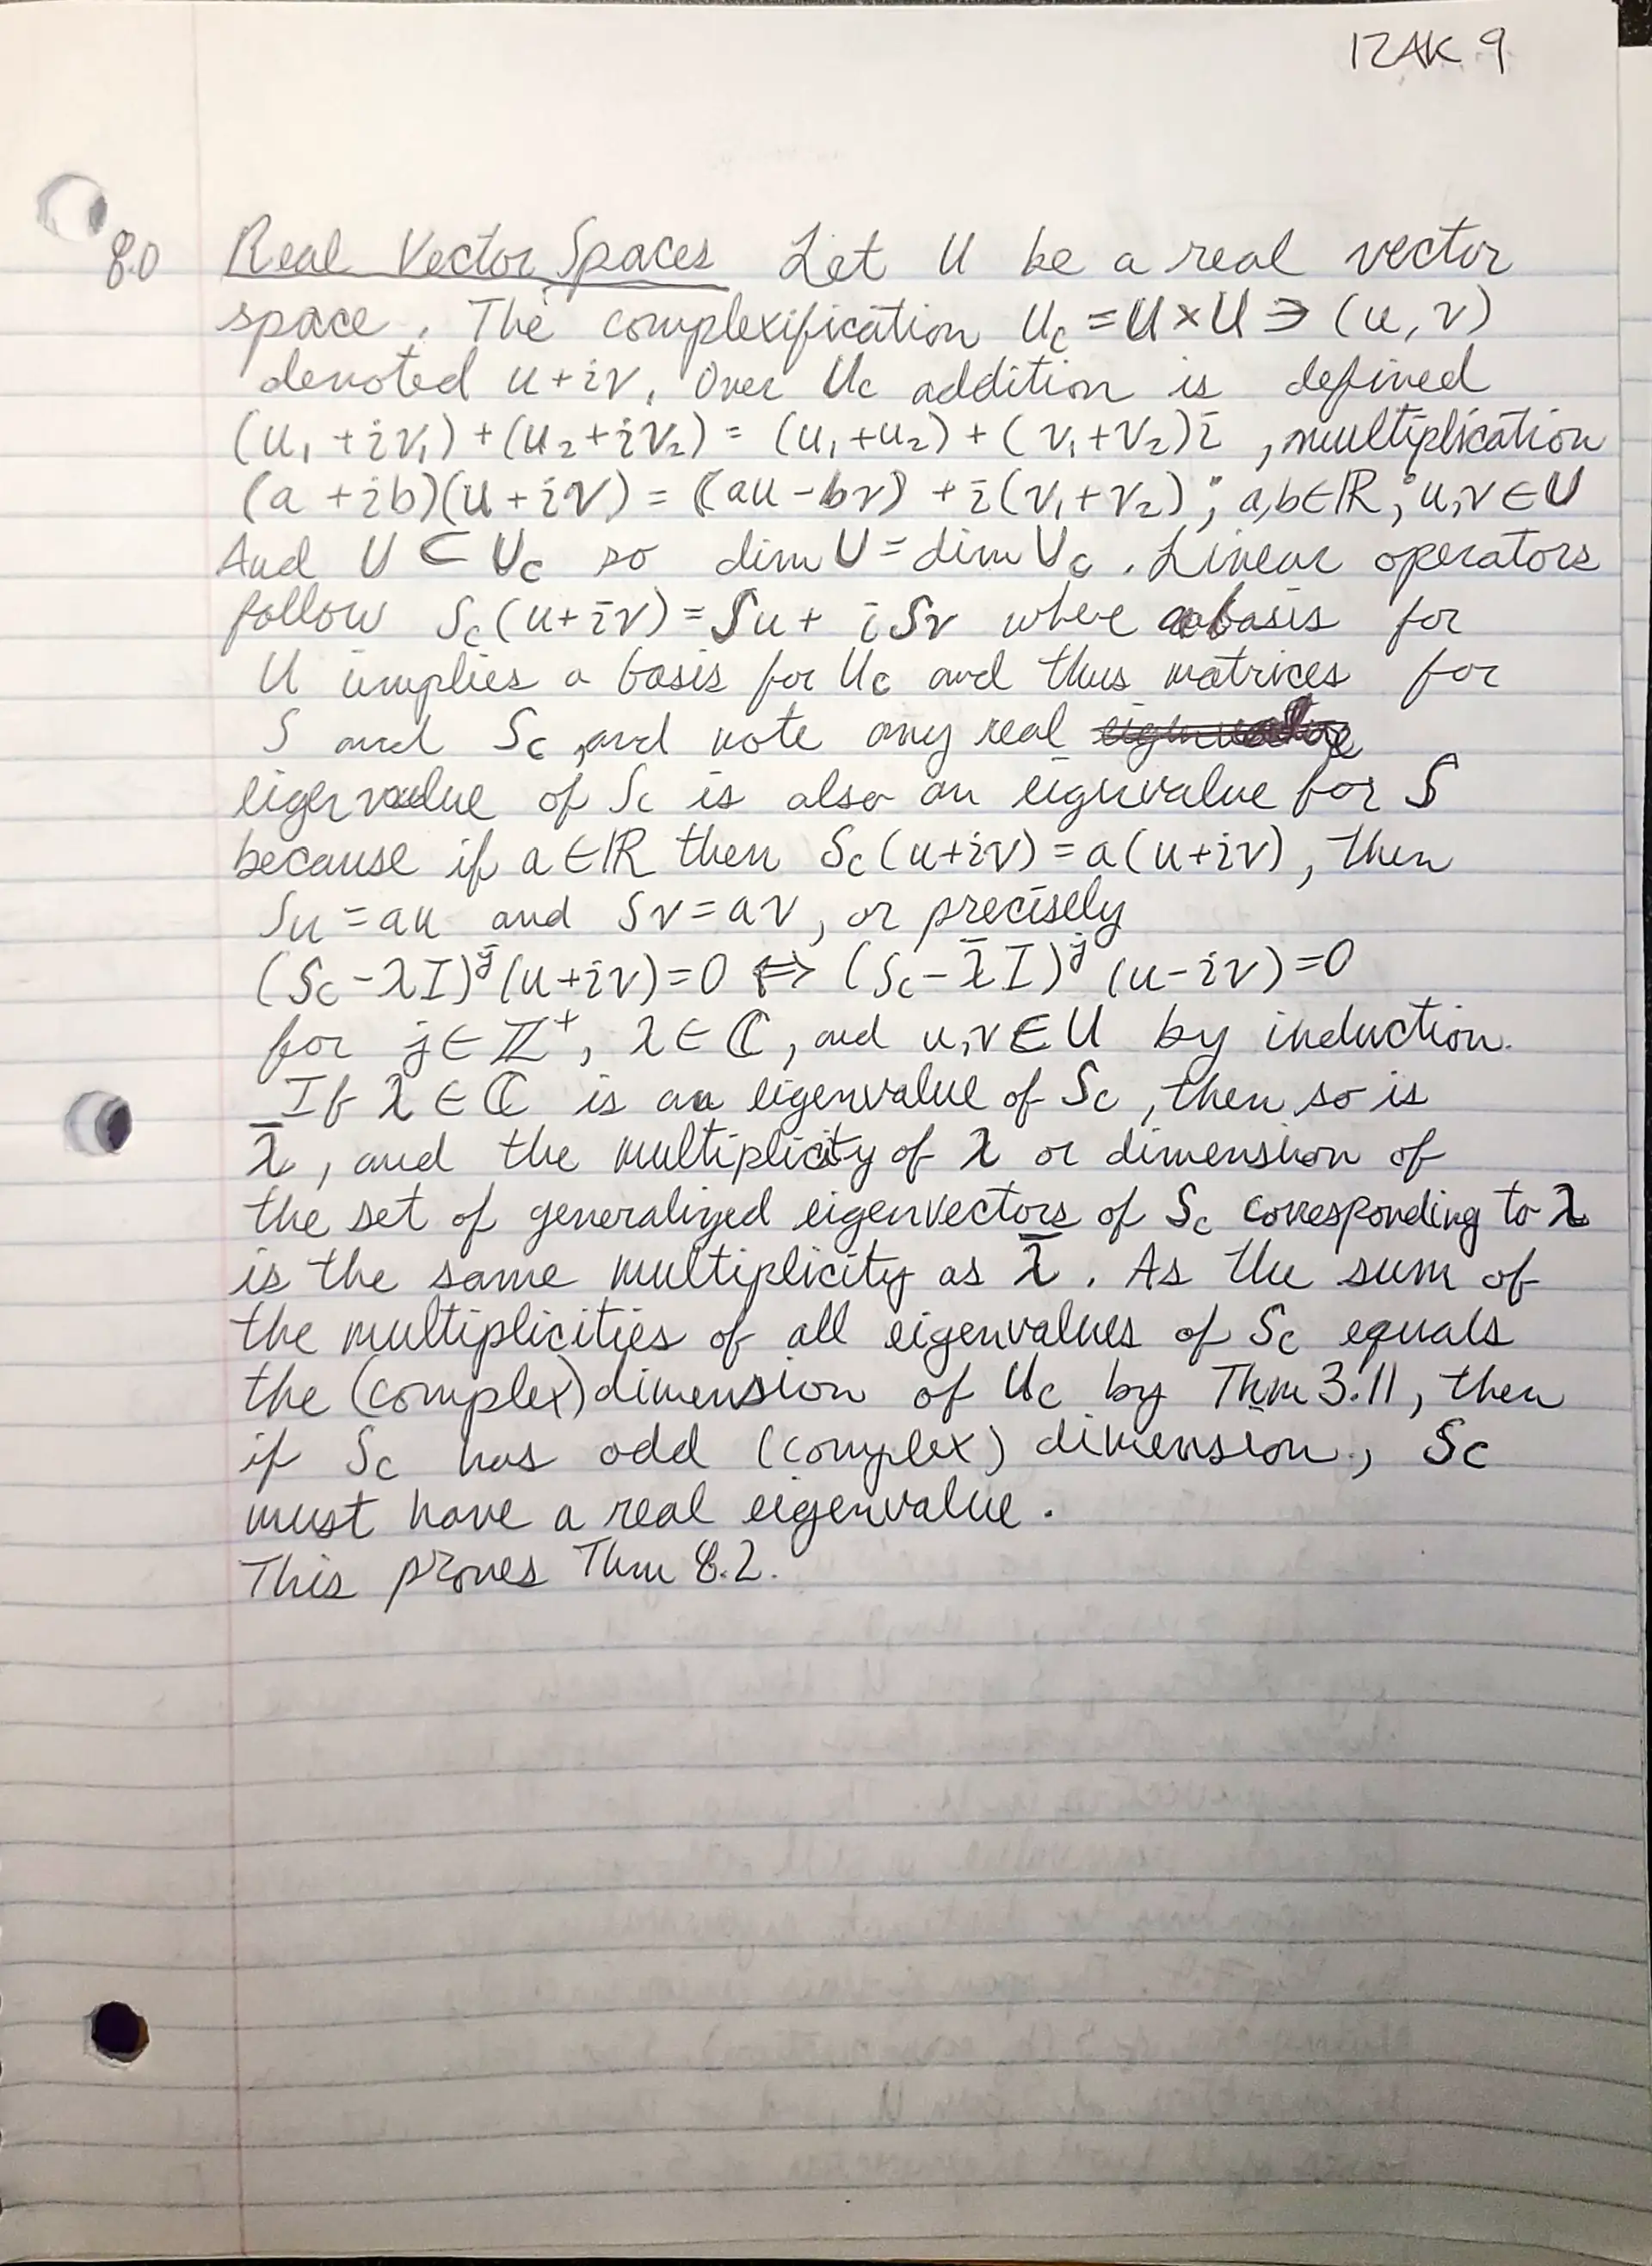 IZAK 9
8.0 Real Vector Spaces Let U be a real vector
space. The complexification U_c = U × U ∋ (u, v)
denoted u + iv. Over U_c addition is defined
(u₁ + iv₁) + (u₂ + iv₂) = (u₁ + u₂) + (v₁ + v₂)i , multiplication
(a + ib)(u + iv) = (au - bv) + i(v₁ + v₂) ; a,b ∈ ℝ ; u,v ∈ U
And U ⊂ U_c so dim U = dim U_c . Linear operators
follow S_c(u + iv) = Su + iSv where a basis for
U implies a basis for U_c and thus matrices for
S and S_c , and note any real
eigenvalue of S_c is also an eigenvalue for S
because if a ∈ ℝ then S_c(u+iv) = a(u+iv), then
Su = au and Sv = av, or precisely
(S_c - λI)^j (u+iv) = 0 ⇔ (S_c - λ̄I)^j (u-iv) = 0
for j ∈ ℤ⁺, λ ∈ ℂ, and u,v ∈ U by induction.
If λ ∈ ℂ is an eigenvalue of S_c , then so is
λ̄ , and the multiplicity of λ or dimension of
the set of generalized eigenvectors of S_c corresponding to λ
is the same multiplicity as λ̄ . As the sum of
the multiplicities of all eigenvalues of S_c equals
the (complex) dimension of U_c by Thm 3.11, then
if S_c has odd (complex) dimension, S_c
must have a real eigenvalue.
This proves Thm 8.2.